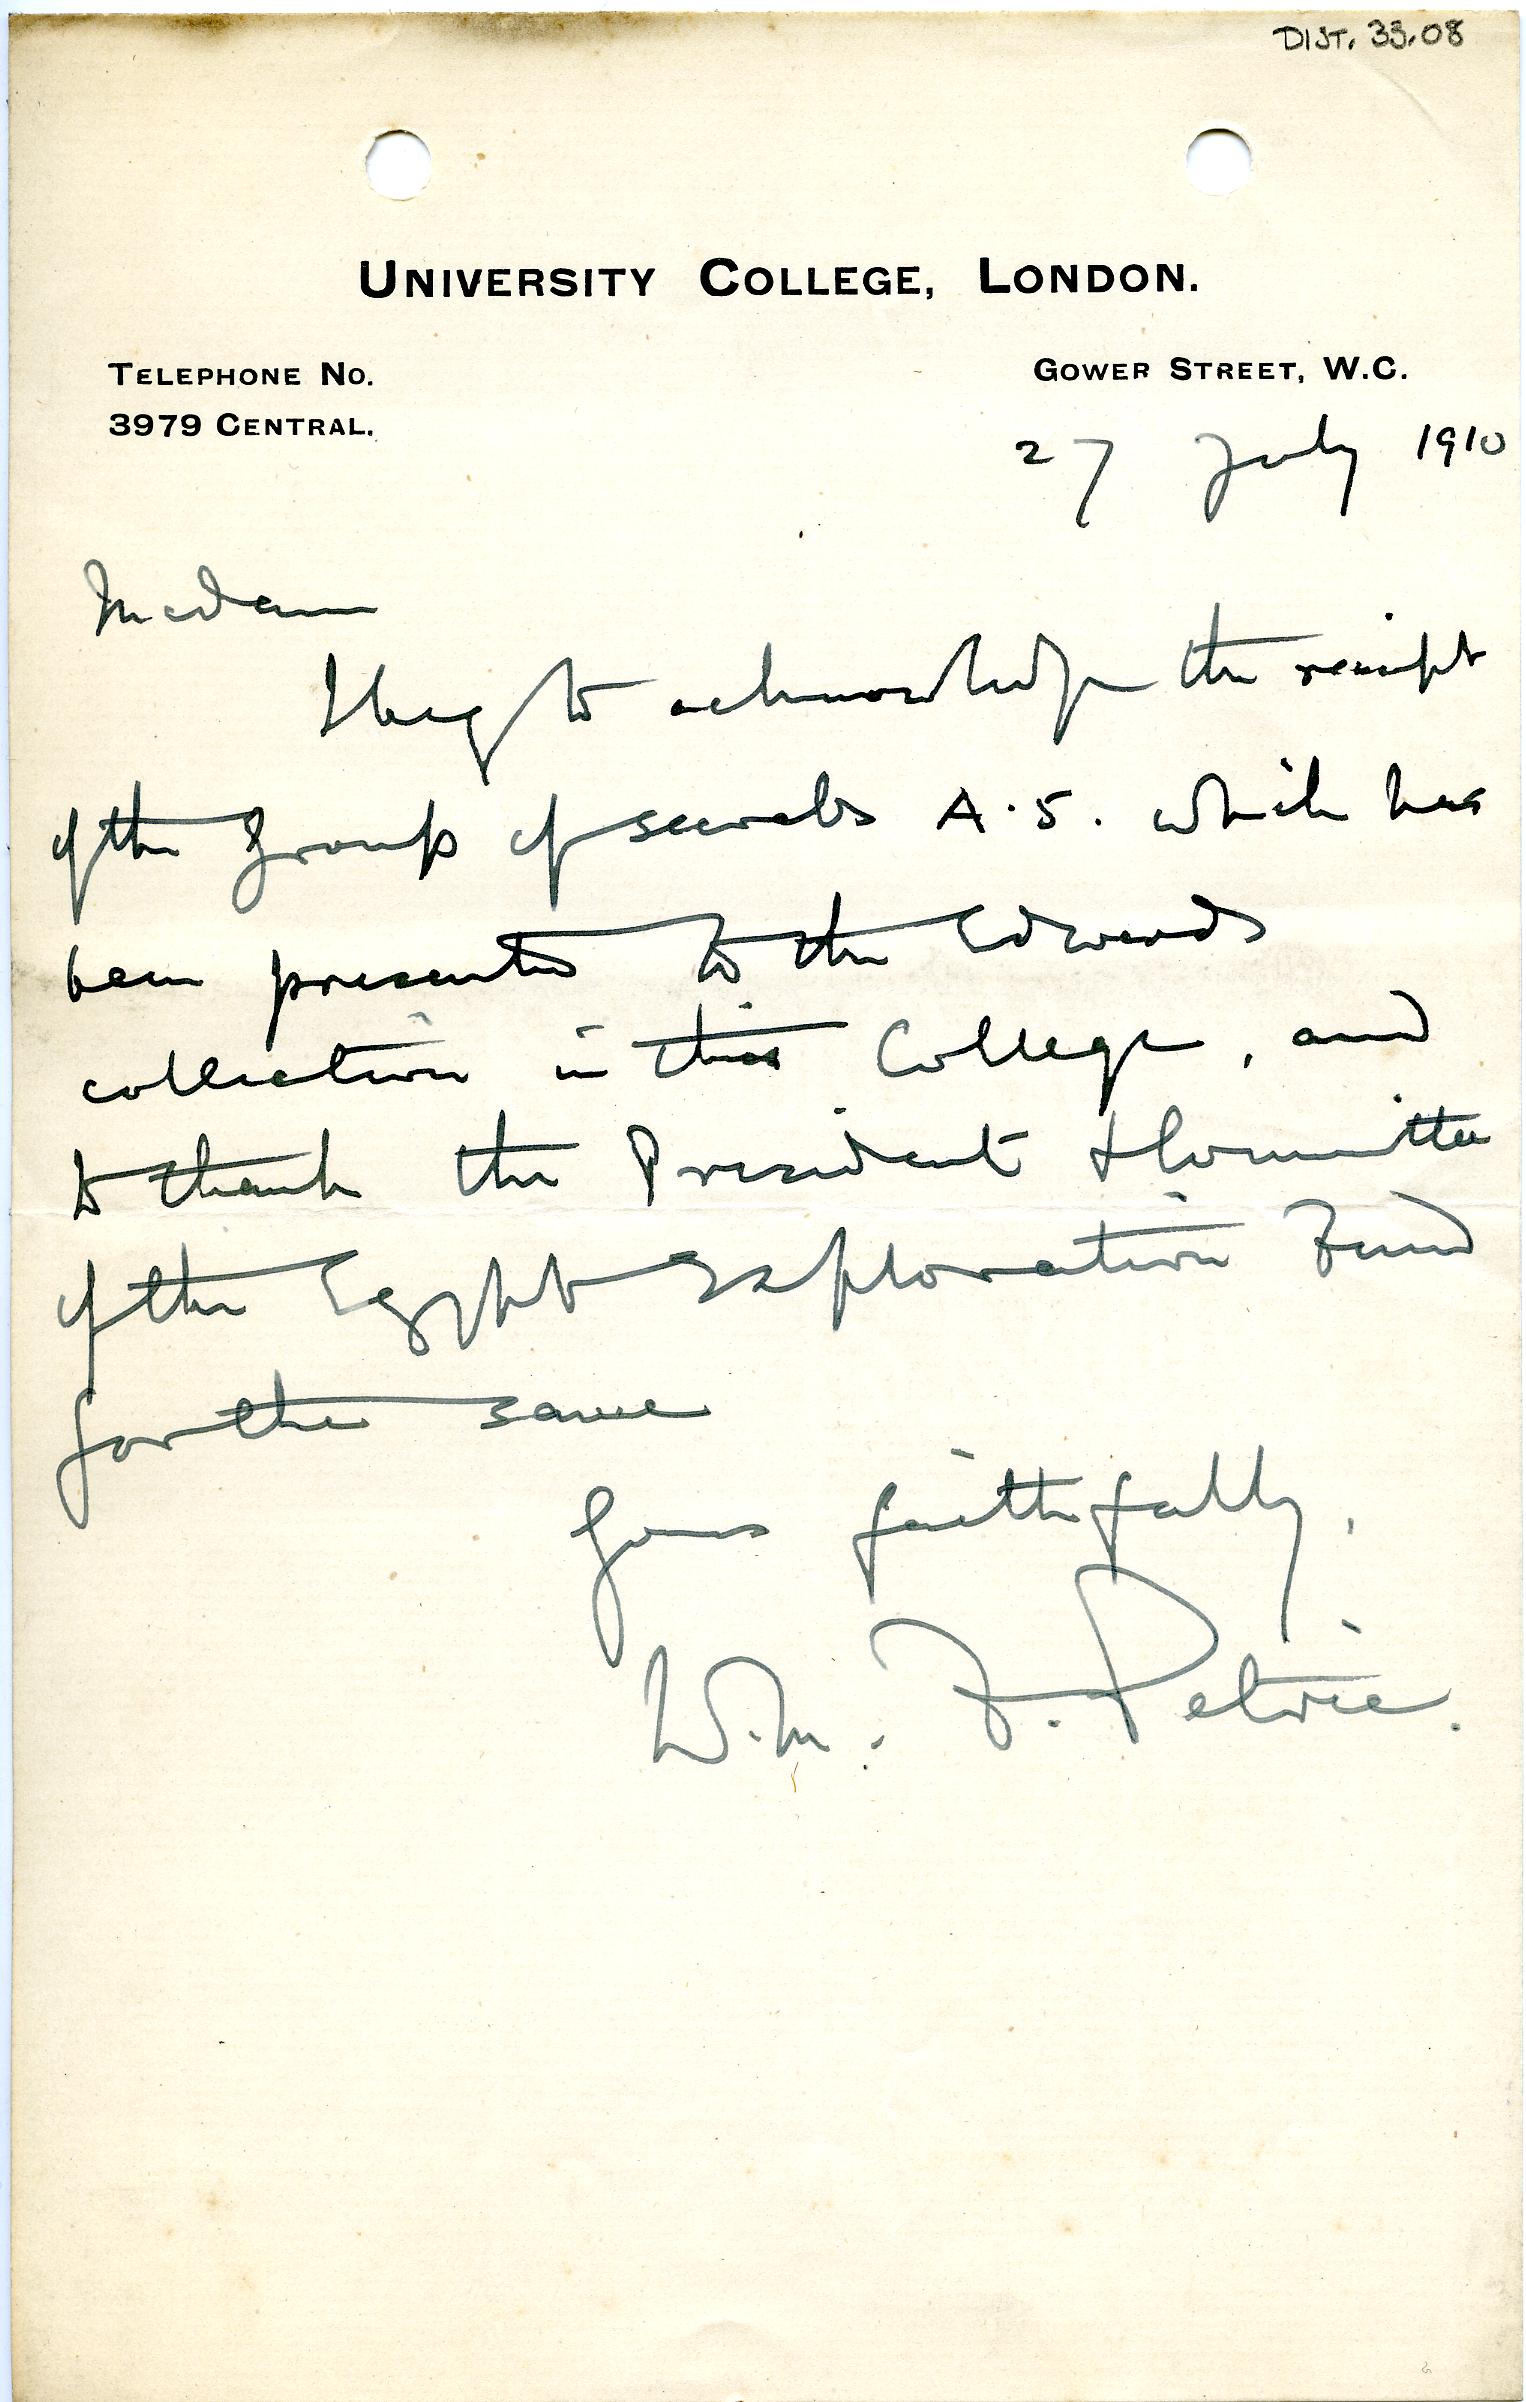 DIST. 33.08
UNIVERSITY COLLEGE, LONDON.
TELEPHONE NO.
3979 CENTRAL.
GOWER STREET, W.C.
27 July 1910
Madam
I beg to acknowledge the receipt
of the group of scarabs A.5. which has
been presented to the Edwards
collection in this College, and
to thank the President & Committee
of the Egypt Exploration Fund
for the same
Yours faithfully,
W.M. F. Petrie.